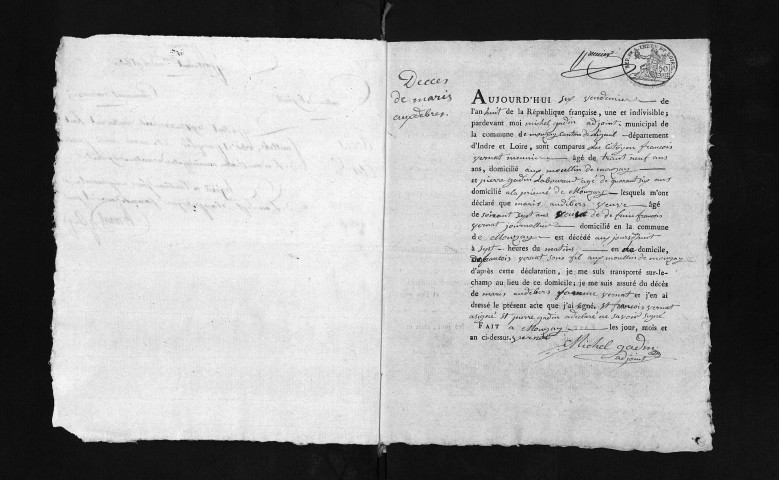 Decces
de maris
audebers.
AUJOURD'HUI six vendemier de
l'an huit de la République française, une et indivisible;
pardevant moi michel gadin adjoint municipal de
la commune de mouzay canton de ligueil département
d'Indre et Loire, sont comparus les citoyen francois
vernat meunier âgé de trante neuf ans
ans, domicilié aux moullin de mouzay
et pierre gadin Labourant agé de quarant six ans
domicilié a la prieuré de Mouzay lesquels m'ont
déclaré que maris audebers veuve âgé
de soixant sept ans de feue francois
vernat journallier domicilié en la commune
de Mouzay est décédé aux jourdhuit
à sept heures du matins en de domicile,
francois vernat sons fil aux moullin de mouzay
d'après cette déclaration, je me suis transporté sur-le-
champ au lieu de ce domicile; je me suis assuré du décès
de maris audebers famme vernat et j'en ai
dressé le présent acte que j'ai signé, et francois vernat
asigné et pierre gadin adeclaré ne savoir signé
FAIT à Mouzay les jour, mois et
an ci-dessus. vernat
Michel gadin
adjoint